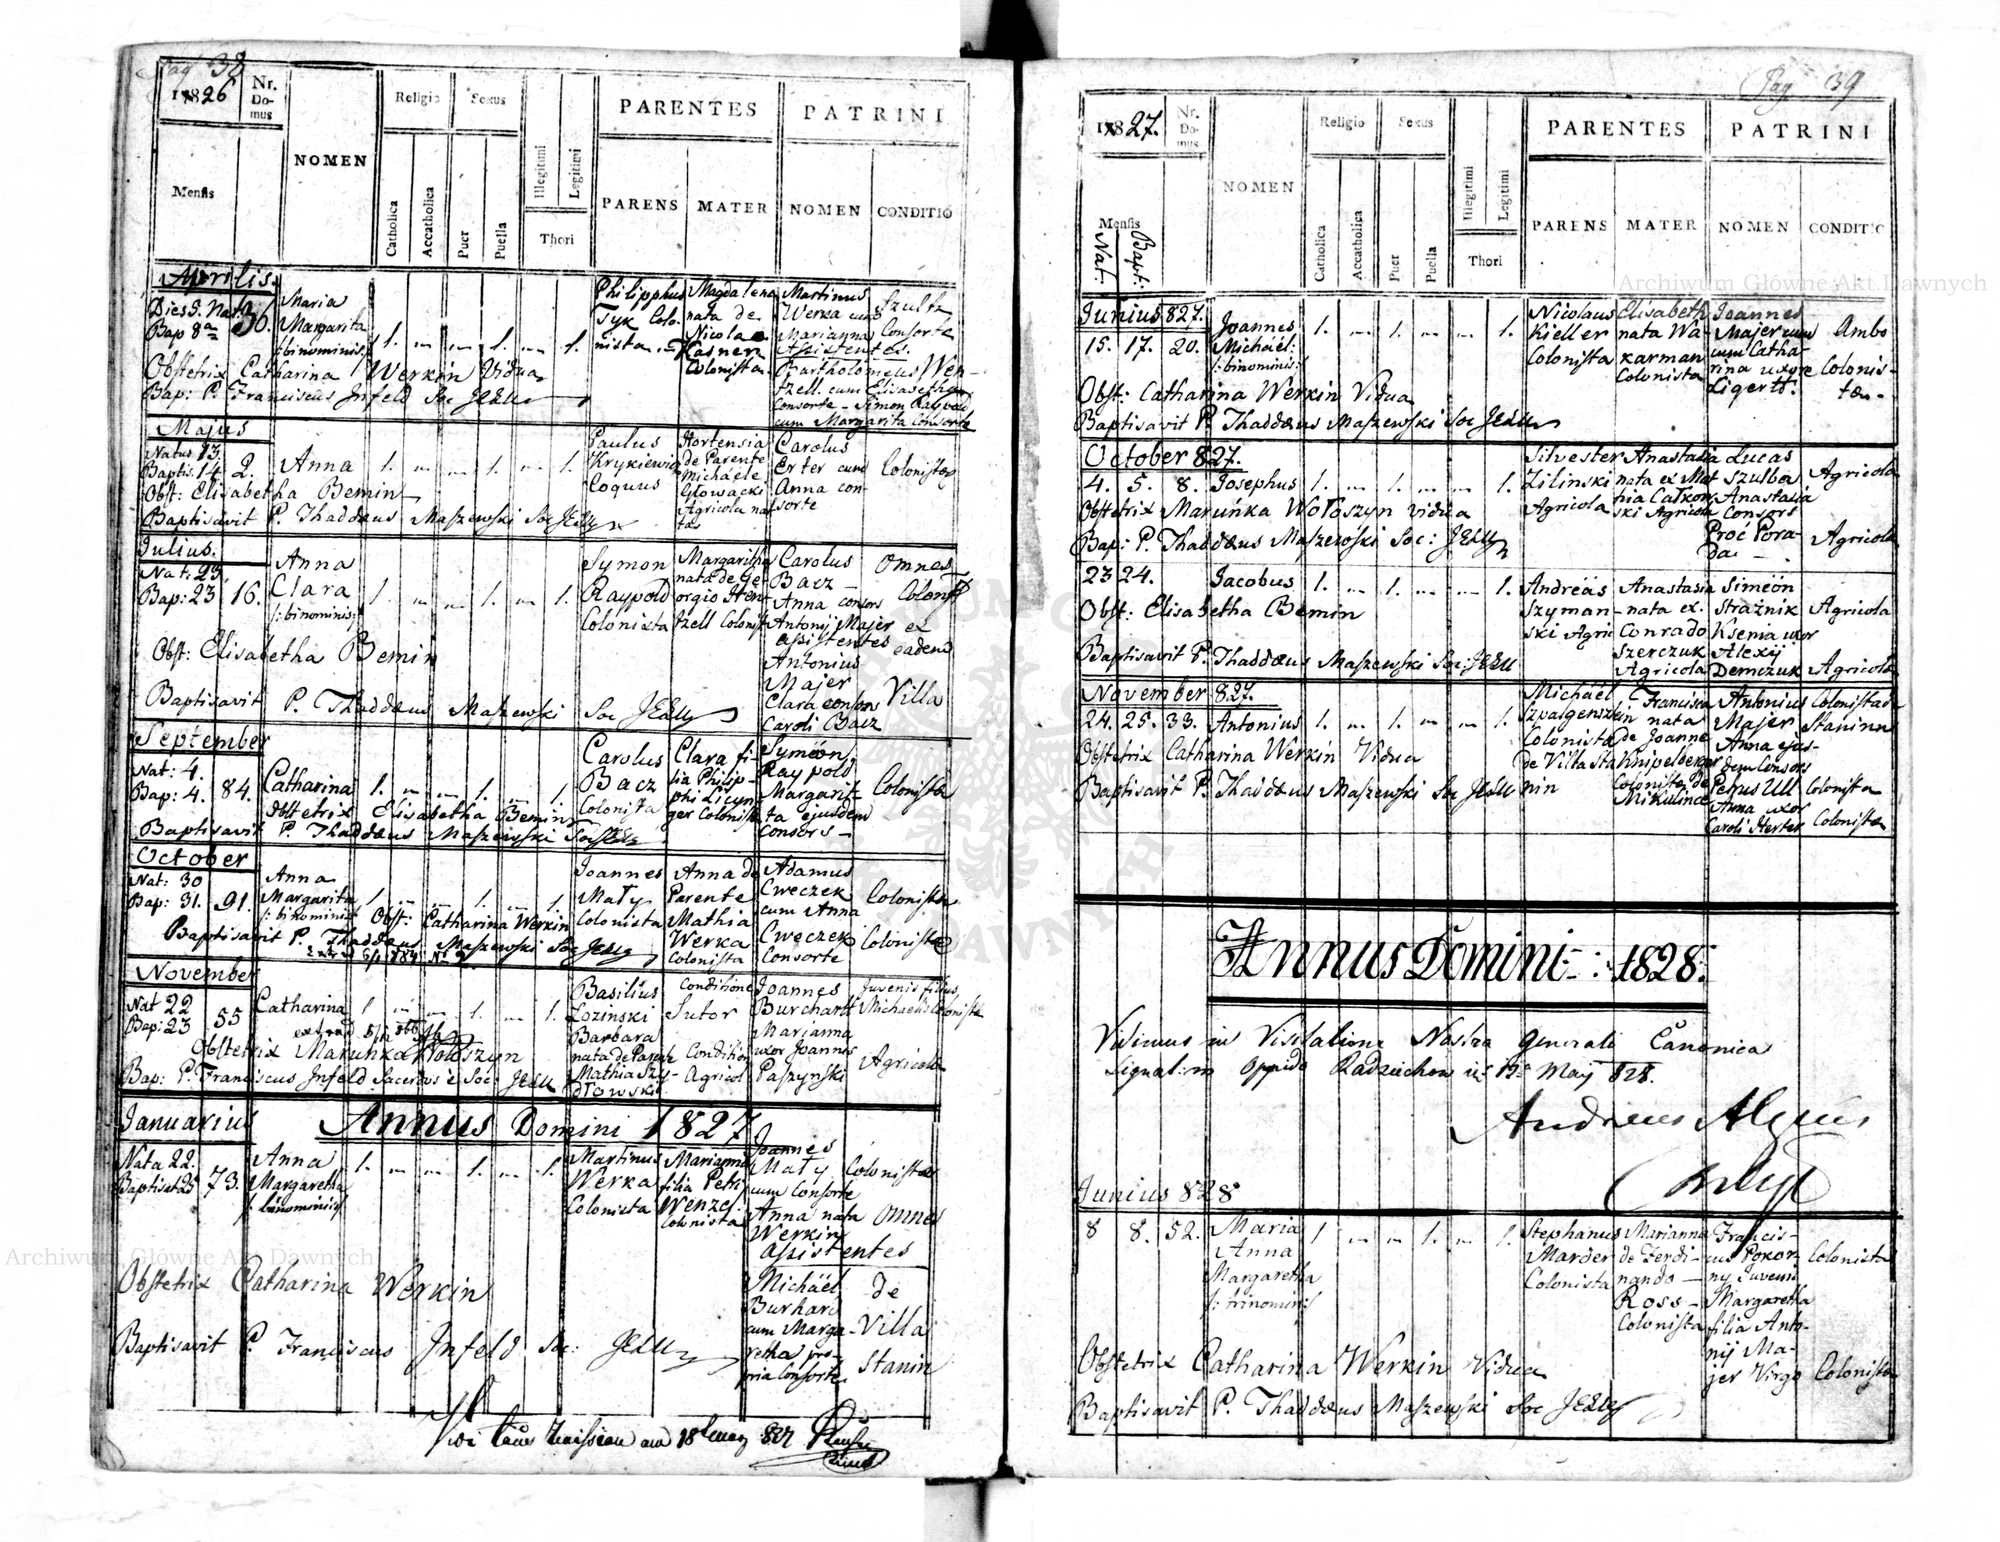 Pag 38
1826
Nr. Domus
NOMEN
Religio
Sexus
PARENTES
PATRINI
Mensis
Catholica
Accatholica
Puer
Puella
Illegitimi
Legitimi
Thori
PARENS
MATER
NOMEN
CONDITIO
Aprilis.
Dies 5. Nat.
Bap 8a
36.
Maria
Margarita
/:binominis:/
1. — — 1. — 1.
Philipphus
Tyx Colo-
nista
Magdalena
nata de
Nicolae
Kasner
Colonista
Martinus
Werka cum
Marianna
Assistentes.
Bartholomeus Wen-
tzell. cum Elisabetha
Consorte – Simon Raypold
cum Margarita Consorte
Szulta
Consorte
Obstetrix Catharina Werkin Vidua
Bap: P. Franciscus Infeld Soc JESU
Majus
Natus 13.
Baptis. 14
2.
Anna
1. — — 1. — 1.
Paulus
Krykiewicz
Coquus
Hortensia
de Parente
Michaële
Głowacki
Agricola na-
tas
Carolus
Erter cum
Anna con-
sorte
Colonistæ
Obst: Elisabetha Bemin
Baptisavit P. Thaddæus Maszewski Soc JESU
Julius.
Nat: 23
Bap: 23
16.
Anna
Clara
/:binominis:/
1. — — 1. — 1.
Symon
Raypold
Colonista
Margaritha
nata de Ge-
orgio Hen-
tzell Colonist
Carolus
Bacz –
Anna consors
Antonij Majer
Assistentes
Antonius
Majer
Clara consors
Caroli Bacz
Omnes
Colonistæ
ex
eadem
Villa
Obst: Elisabetha Bemin
Baptisavit P. Thaddæus Maszewski Soc JESU
September
Nat: 4.
Bap: 4.
84.
Catharina
1. — — 1. — 1.
Carolus
Bacz
Colonista
Clara fi-
lia Philip-
phi Licyn-
ger Colonistæ
Symeon
Raypold
Margarit
ta ejusdem
Consors –
Colonistæ
Obstetrix Elisabetha Bemin
Baptisavit P. Thaddæus Maszewski Soc JESU
October
Nat: 30
Bap: 31.
91.
Anna
Margarita
/:binominis
1. — — 1. — 1.
Joannes
Mały
Colonista
Anna de
Parente
Mathia
Werka
Colonista
Adamus
Cweczek
cum Anna
Cweczek
Consorte
Colonistæ
Colonistæ
Obst: Catharina Werkin
Baptisavit P. Thaddæus Maszewski Soc JESU
November
Nat 22
Bap: 23
55
Catharina
1 — — 1. — 1.
Basilius
Lozinski
Barbara
nata de Parente
Mathia Szy-
dłowski
Conditione
Sutor
Condition
Agricol
Joannes
Burchardt
Marianna
uxor Joannes
Paszyński
Juvenis filius
Michaelis Colonistæ
Agricola
Obstetrix Maruńka Wołoszyn
Bap: P. Franciscus Infeld Sacerdos è Soc: JESU
Januarius
Annus Domini 1827
Nata 22.
Baptisata 25
73.
Anna
Margaretha
/:binominis:/
1. — — 1. — 1.
Martinus
Werka
Colonista
Marianna
filia Petri
Wenzel
Colonista
Joannes
Mały
cum Consorte
Anna nata
Werkin
Assistentes
Michäel
Burhard
cum Marga-
retha pro-
pria Consorte
Colonistæ
Omnes
de
Villa
Stanin
Obstetrix Catharina Werkin
Baptisavit P. Franciscus Infeld Soc: JESU
Pag 39
1827.
Nr. Domus
NOMEN
Religio
Sexus
PARENTES
PATRINI
Mensis
Nat:
Bapt:
Catholica
Accatholica
Puer
Puella
Illegitimi
Legitimi
Thori
PARENS
MATER
NOMEN
CONDITIO
Archiwum Główne Akt Dawnych
Junius 827.
15. 17. 20.
Joannes
Michäel:
/:binominis:/
1. — 1. — — 1.
Nicolaus
Kieller
Colonista
Elisabeth
nata Wa-
karman
Colonista
Joannes
Majer cum
cum Catha-
rina uxore
Ligertt.
Ambo
Colonis-
tæ –
Obst: Catharina Werkin Vidua
Baptisavit P. Thaddæus Maszewski Soc JESU
October 827.
4. 5. 8. Josephus
1. — 1. — — 1.
Silvester
Zilinski
Agricola
Anastasia
nata ex Mat
thia Całkow
ski Agricola
Lucas
Szulba
Anastasia
Consors
Proć Pora-
da –
Agricola
Agricola
Obstetrix Maruńka Wołoszyn vidua
Bap: P. Thaddæus Maszewski Soc: JESU
23 24. Jacobus
1. — 1. — — 1.
Andreäs
Szyman-
ski Agri
Anastasia
nata ex.
Conrado
Szerczuk
Agricola
Simeon
Strażnik
Ksenia uxor
Alexij
Demczuk
Agricola
Agricola
Obst: Elisabetha Bemin
Baptisavit P. Thaddæus Maszewski Soc: JESU
November 827.
24. 25. 33. Antonius
1. — 1. — — 1.
Michäel
Szpalgenszt
Colonista
de Villa Sta
nin
Francisca
nata
de Joanne
Knipelberger
Colonista de
Mikulince
Antonius
Majer
Anna ejus-
dem Consors
Petrus Ull
Anna uxor
Caroli Herter
Colonista de
Stanin
Colonista
Colonistæ
Obstetrix Catharina Werkin Vidua
Baptisavit P. Thaddæus Maszewski Soc JESU
Annus Domini : 1828.
Vidimus in Visitatione Nostra Generali Canonica
Signat: in Oppido Radziechow
May 828.
Andreas
Junius 828
8 8. 52. Maria
Anna
Margaretha
/:trinominis
1 — — 1. — 1.
Stephanus
Marder
Colonista
Marianna
de Ferdi-
nando –
Ross –
Colonista
Francis-
cus Pokor-
ny Juvenis
Margaretha
filia Anto-
nij Ma-
jer Virgo
Colonista
Colonista
Obstetrix Catharina Werkin Vidua
Baptisavit P. Thaddæus Maszewski Soc JESU
Archiwum Główne Akt Dawnych